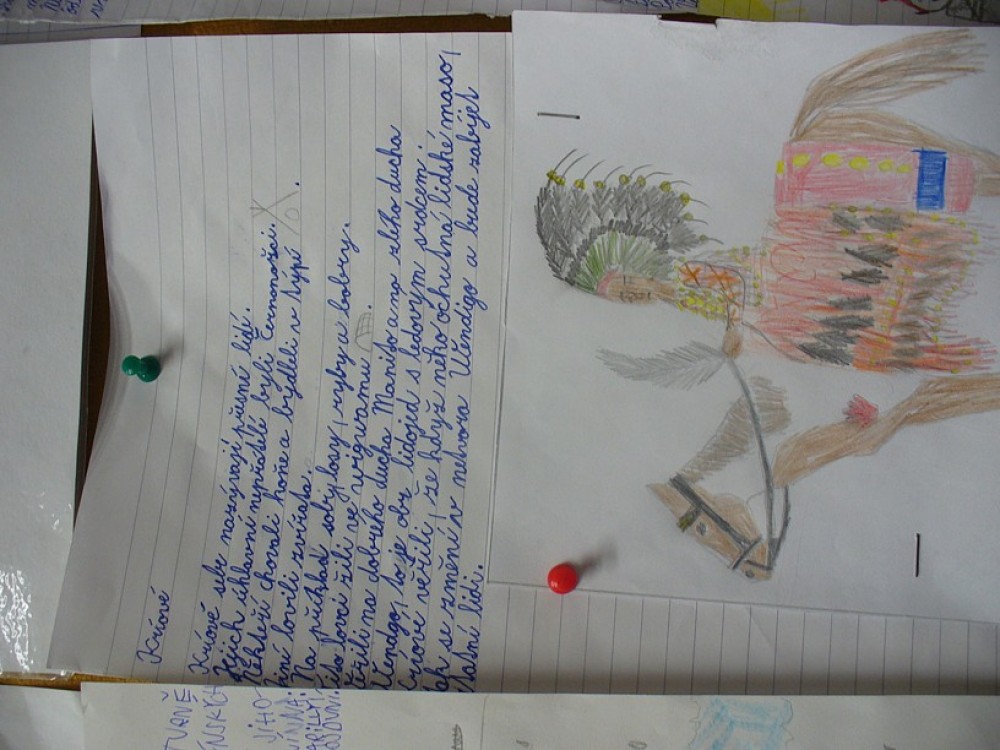 Kríové
Kríové sebe nazývají přesné lidi.
Jejich úhlavní nepřátelé byli Černonožci.
Někteří chovali koně a bydleli v týpí.
iní lovili zvířata.
Na příklad soby, losy, ryby a bobry.
ito lovci žili ve wigwamu.
ěřili na dobrého ducha Manitoa na zlého ducha
Wendigo, to je obr lidojed s ledovým srdcem.
ríové věřili, že když něho ochutná lidské maso,
ak se změní v netvora Wendigo a bude zabíjet
statní lidi.